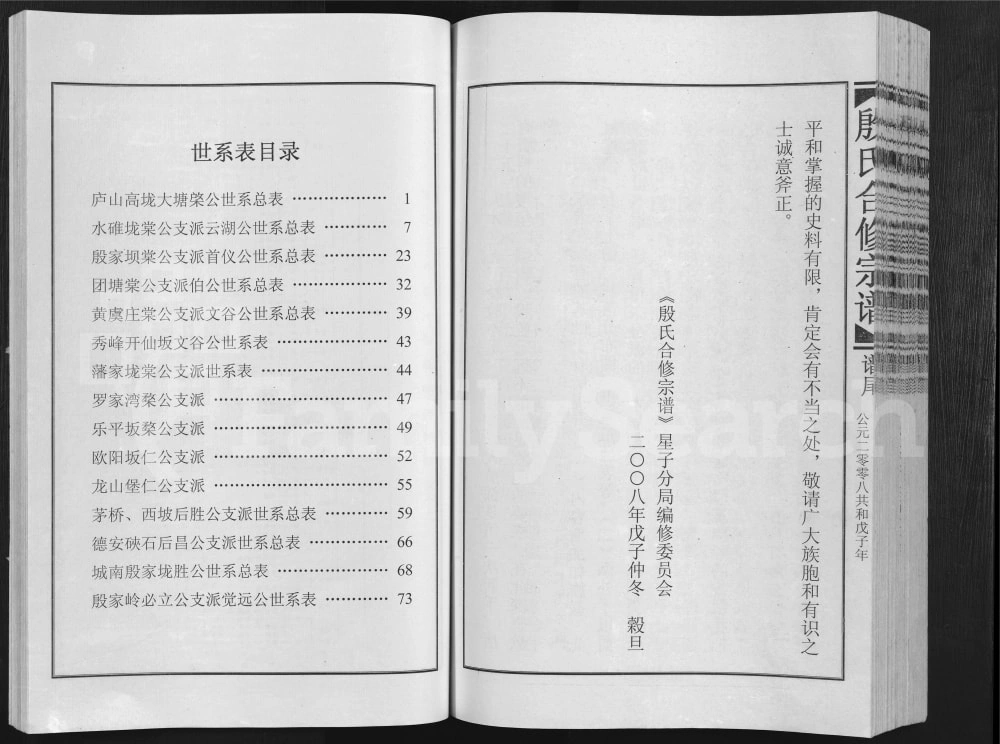 平和掌握的史料有限，肯定会有不当之处，敬请广大族胞和有识之
士诚意斧正。
《殷氏合修宗谱》星子分局编修委员会
二〇〇八年戊子仲冬　榖旦
殷氏合修宗谱
谱尾
公元二零零八共和戊子年
世系表目录
庐山高垅大塘棨公世系总表 ………………… 1
水碓垅棠公支派云湖公世系总表 ………… 7
殷家坝棠公支派首仪公世系总表 ………… 23
团塘棠公支派伯公世系总表 ……………… 32
黄虞庄棠公支派文谷公世系总表 ………… 39
秀峰开仙坂文谷公世系表 ………………… 43
藩家垅棠公支派世系表 …………………… 44
罗家湾棨公支派 …………………………… 47
乐平坂棨公支派 …………………………… 49
欧阳坂仁公支派 …………………………… 52
龙山堡仁公支派 …………………………… 55
茅桥、西坡后胜公支派世系总表 ………… 59
德安硖石后昌公支派世系总表 …………… 66
城南殷家垅胜公世系总表 ………………… 68
殷家岭必立公支派觉远公世系表 ………… 73
FamilySearch